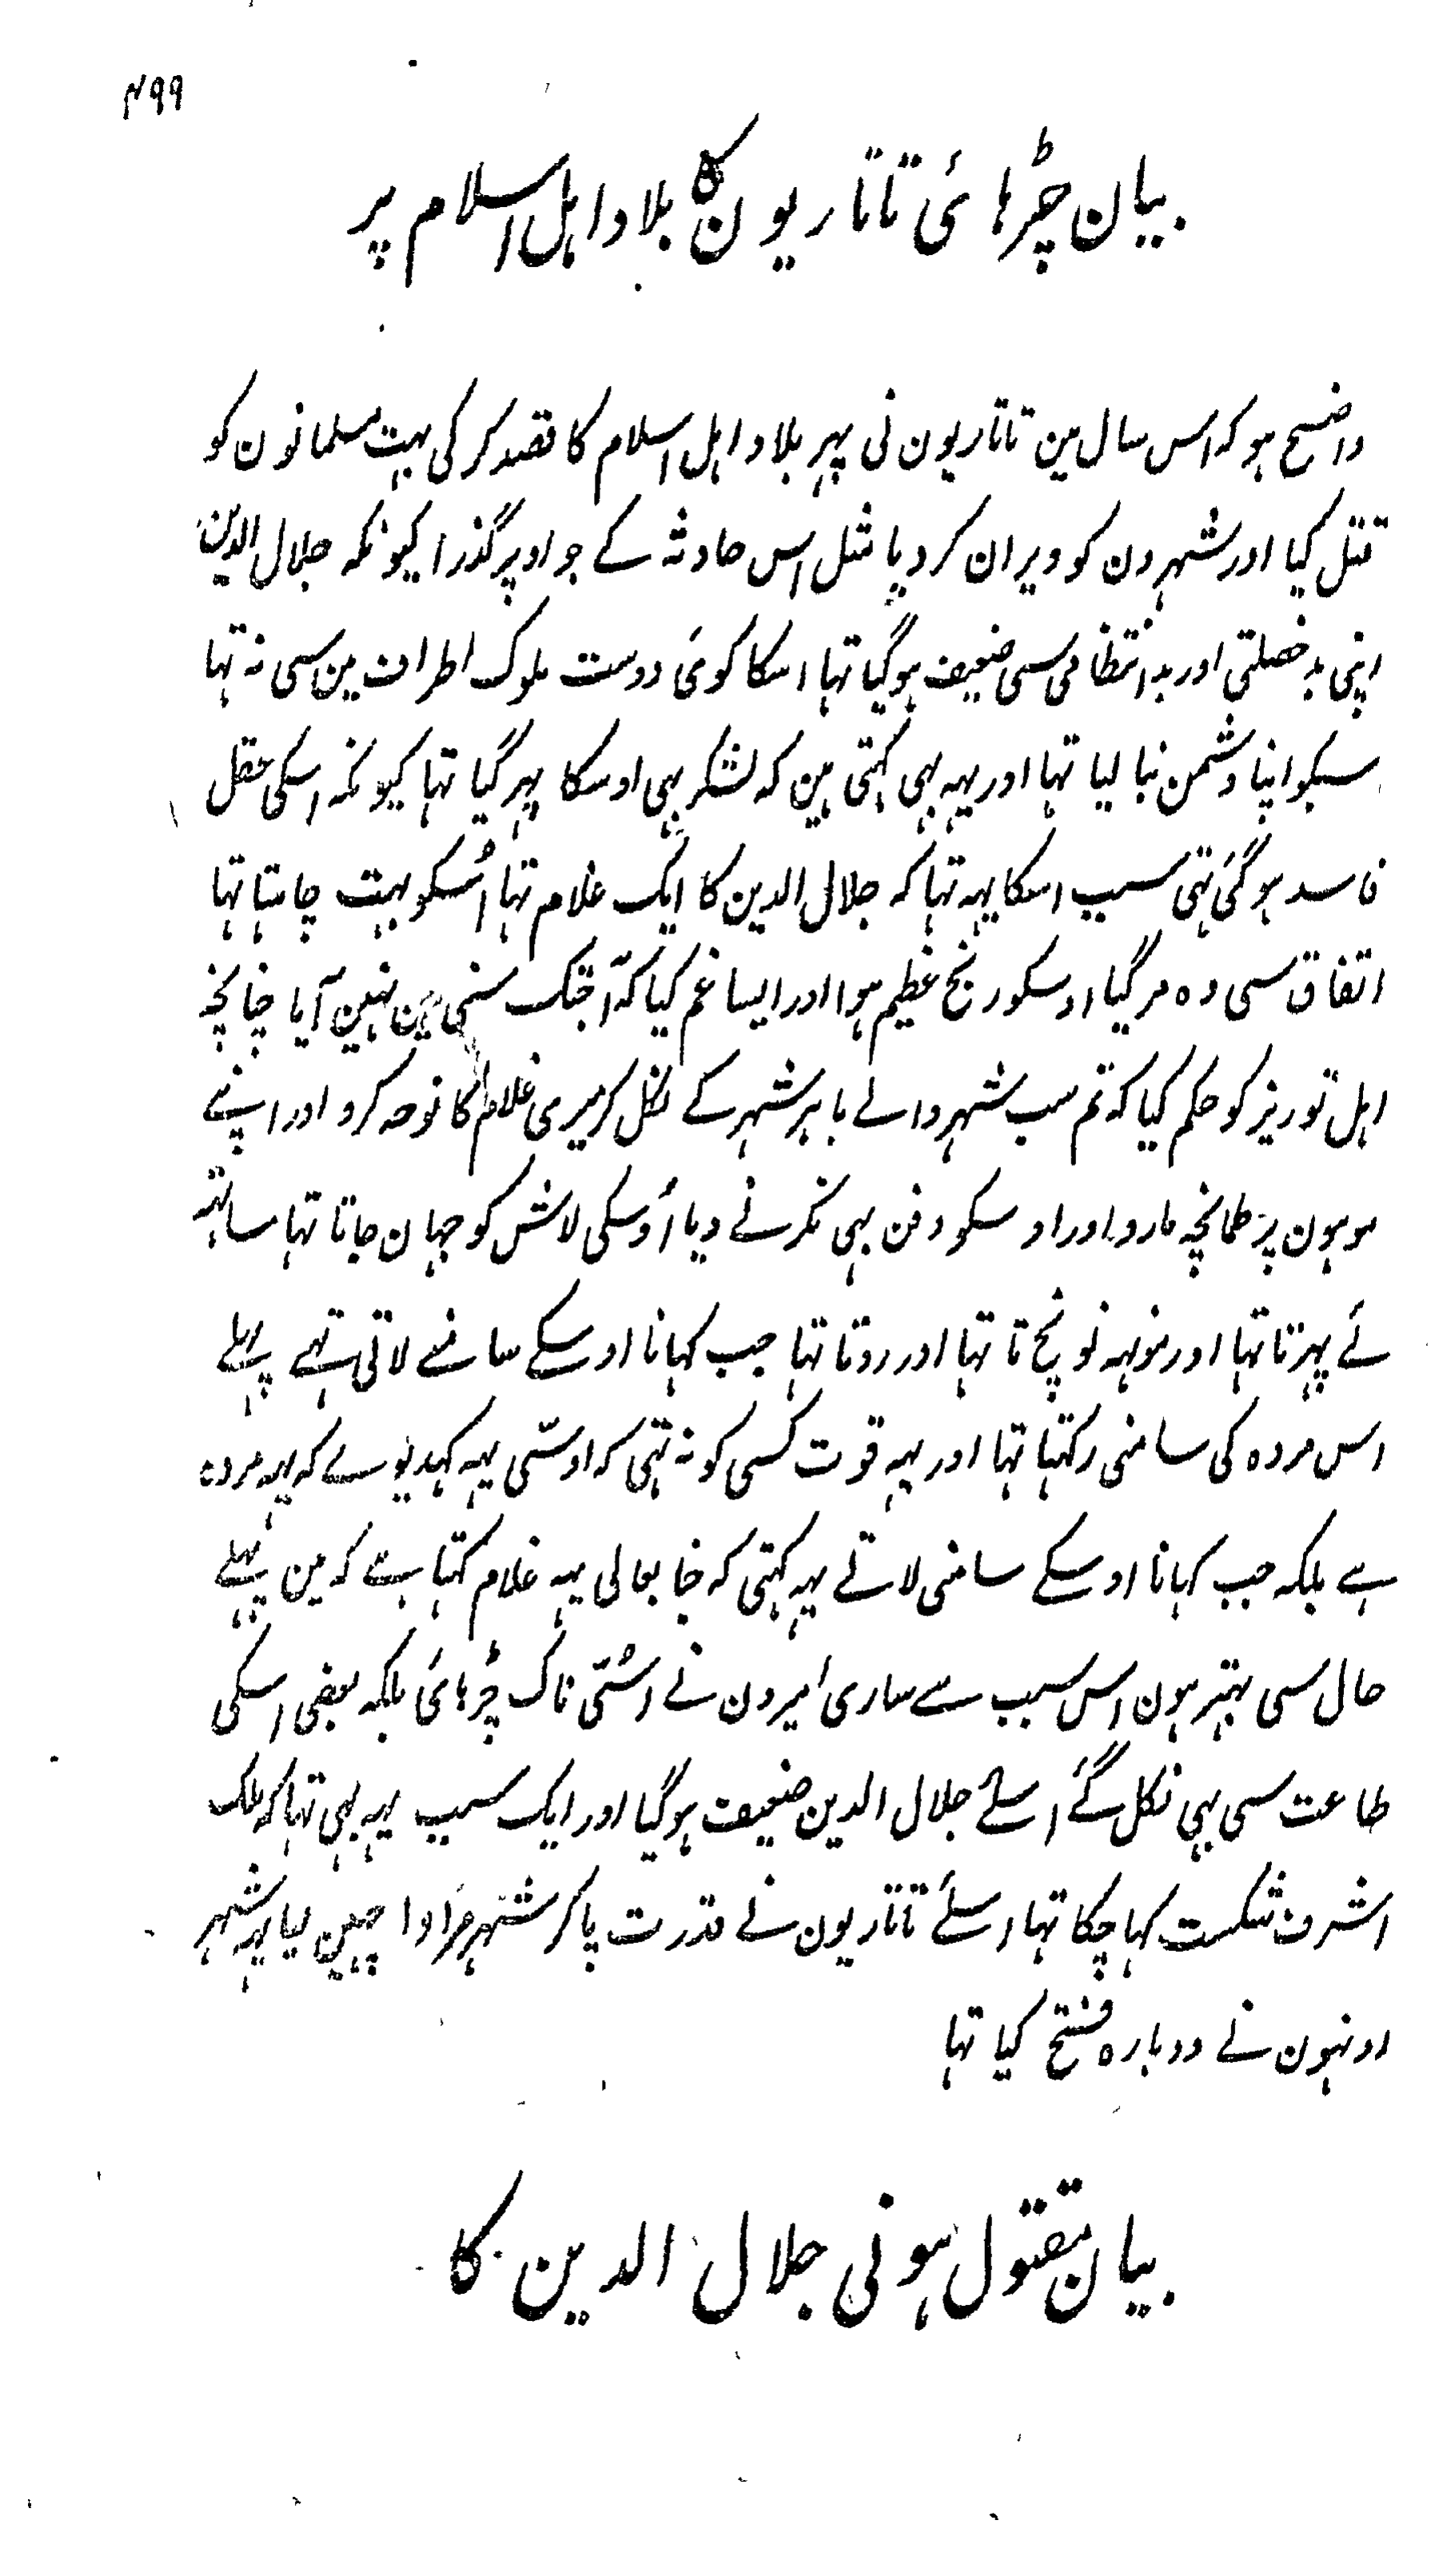 ۴۹۹
بیان چڑہائی تاتاریون کا بلاد اہل اسلام پر
واضح ہو کہ اس سال مین تاتاریون نی پہر بلاد اہل اسلام کا قصد کر کی بہت مسلمانون کو
قتل کیا اور شہرون کو ویران کر دیا مثل اس حادثہ کے جو اوپر گذرا کیونکہ جلال الدین
اپنی بد خصلتی اور بد انتظامی سی ضعیف ہو گیا تہا اسکا کوئی دوست ملوک اطراف مین سی نہ تہا
سبکو اپنا دشمن بنا لیا تہا اور یہہ بہی کہتی ہین کہ لشکر بہی اوسکا پہر گیا تہا کیونکہ اسکی عقل
فاسد ہو گئی تہی سبب اسکا یہہ تہا کہ جلال الدین کا ایک غلام تہا اُسکو بہت چاہتا تہا
اتفاق سی وہ مر گیا اوسکو رنج عظیم ہوا اور ایسا غم کیا کہ آجتک سنی مین نہین آیا چنانچہ
اہل توریز کو حکم کیا کہ تم سب شہر والے باہر شہر کے نکل کر میری غلام کا نوحہ کرو اور اپنے
موہون پر طمانچہ مارو اور اوسکو دفن بہی نکرنے دیا اُوسکی لاش کو جہان جاتا تہا ساتہہ
لئے پہرتا تہا اور مونہہ نوچتا تہا اور روتا تہا جب کہانا اوسکے سامنے لاتی تہے پہلے
اس مردہ کی سامنی رکہتا تہا اور یہہ قوت کسی کو نہ تہی کہ اوسسی یہہ کہدیوے کہ یہہ مردہ
ہے بلکہ جب کہانا اوسکے سامنی لاتے یہہ کہتی کہ جنابعالی یہہ غلام کہتا ہے کہ مین پہلے
حال سی بہتر ہون اس سبب سے ساری امیرون نے اسسی ناک چڑہائی بلکہ بعضی اسکی
طاعت سی بہی نکل گئے اسلئے جلال الدین ضعیف ہو گیا اور ایک سبب یہہ بہی تہا کہ ملک
اشرف شکست کہا چکا تہا اسلئے تاتاریون نے قدرت پا کر شہر مراوا چہین لیا یہہ شہر
اونہون نے دوبارہ فتح کیا تہا
بیان مقتول ہونی جلال الدین کا